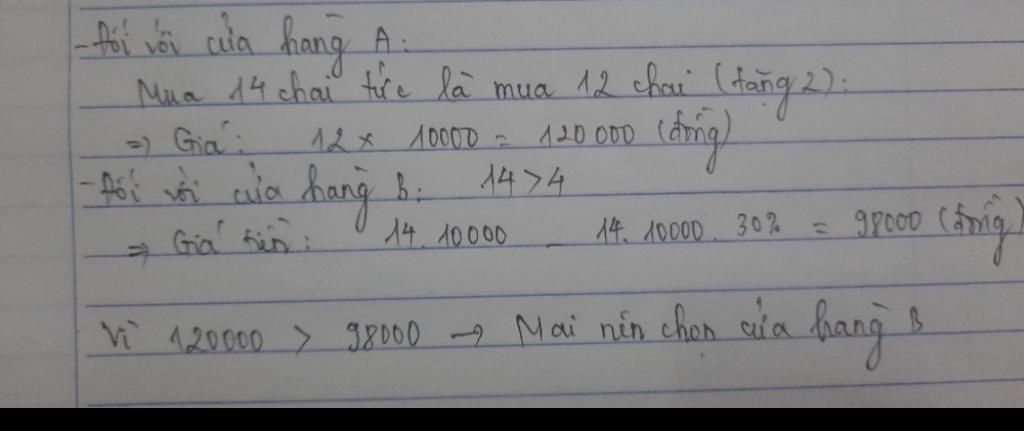 - Đối với cửa hàng A:
Mua 14 chai tức là mua 12 chai (tặng 2):
=> Giá: 12 x 10000 = 120 000 (đồng)
- Đối với cửa hàng B: 14 > 4
=> Giá tiền: 14. 10000 - 14. 10000. 30% = 98000 (đồng)
Vì 120000 > 98000 → Mai nên chọn cửa hàng B